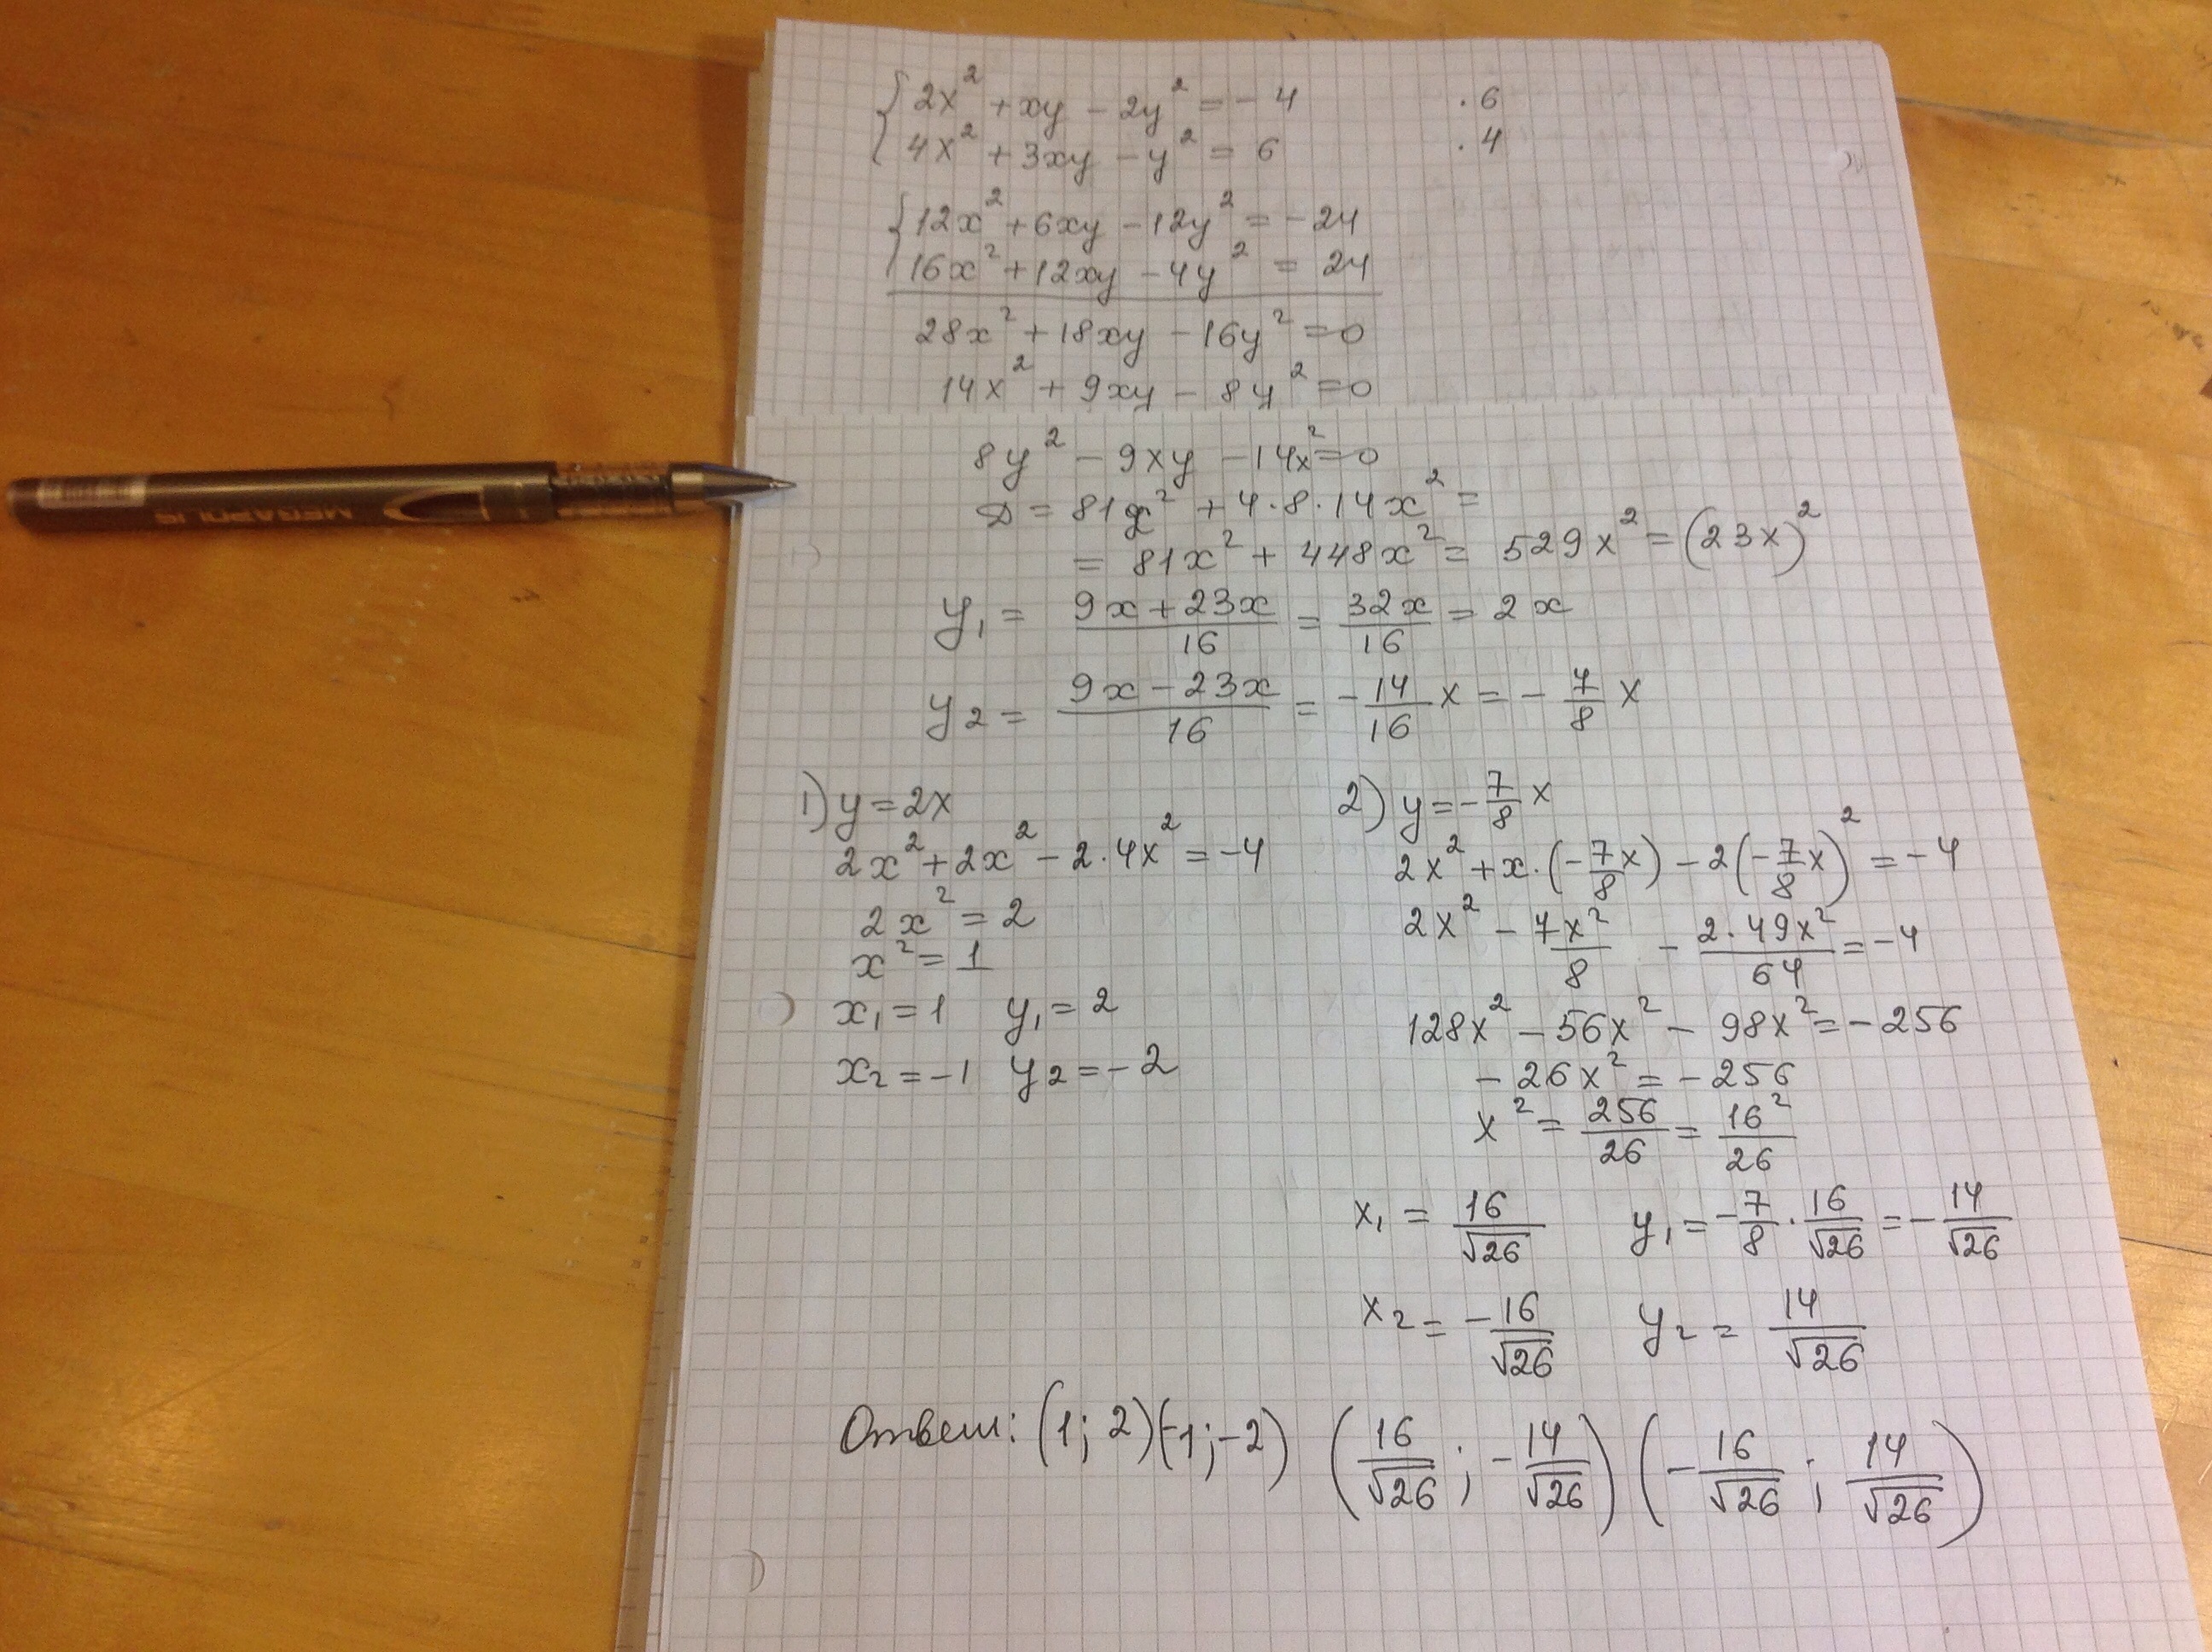 {2x² + xy − 2y² = −4 ·6
{4x² + 3xy − y² = 6 ·4
{12x² + 6xy − 12y² = −24
{16x² + 12xy − 4y² = 24
28x² + 18xy − 16y² = 0
14x² + 9xy − 8y² = 0
8y² − 9xy − 14x² = 0
D = 81x² + 4·8·14x² =
= 81x² + 448x² = 529x² = (23x)²
y₁ = (9x + 23x)/16 = 32x/16 = 2x
y₂ = (9x − 23x)/16 = −14/16 x = −7/8 x
1) y = 2x
2x² + 2x² − 2·4x² = −4
2x² = 2
x² = 1
x₁ = 1 y₁ = 2
x₂ = −1 y₂ = −2
2) y = −7/8 x
2x² + x·(−7/8 x) − 2(−7/8 x)² = −4
2x² − 7x²/8 − 2·49x²/64 = −4
128x² − 56x² − 98x² = −256
−26x² = −256
x² = 256/26 = 16²/26
x₁ = 16/√26 y₁ = −7/8 · 16/√26 = −14/√26
x₂ = −16/√26 y₂ = 14/√26
Ответ: (1; 2)(−1; −2) (16/√26; −14/√26) (−16/√26; 14/√26)
MEGAPOLIS